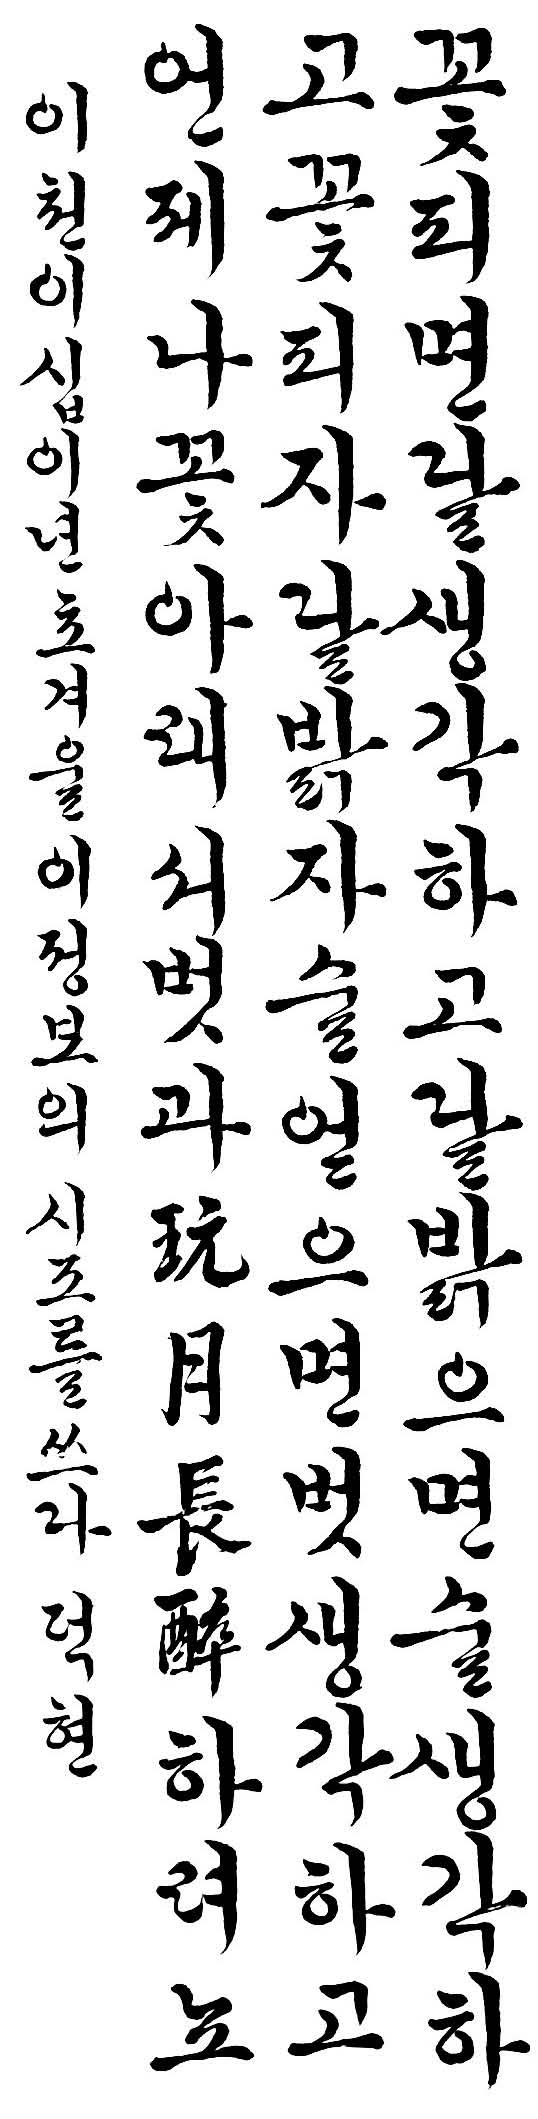 꽃피면달생각하고달밝으면술생각하
고꽃피자달밝자술얻으면벗생각하고
언제나꽃아래쇠벗과玩月長醉하려뇨
이천이십이년초겨울 이정보의 시조를쓰다 덕현